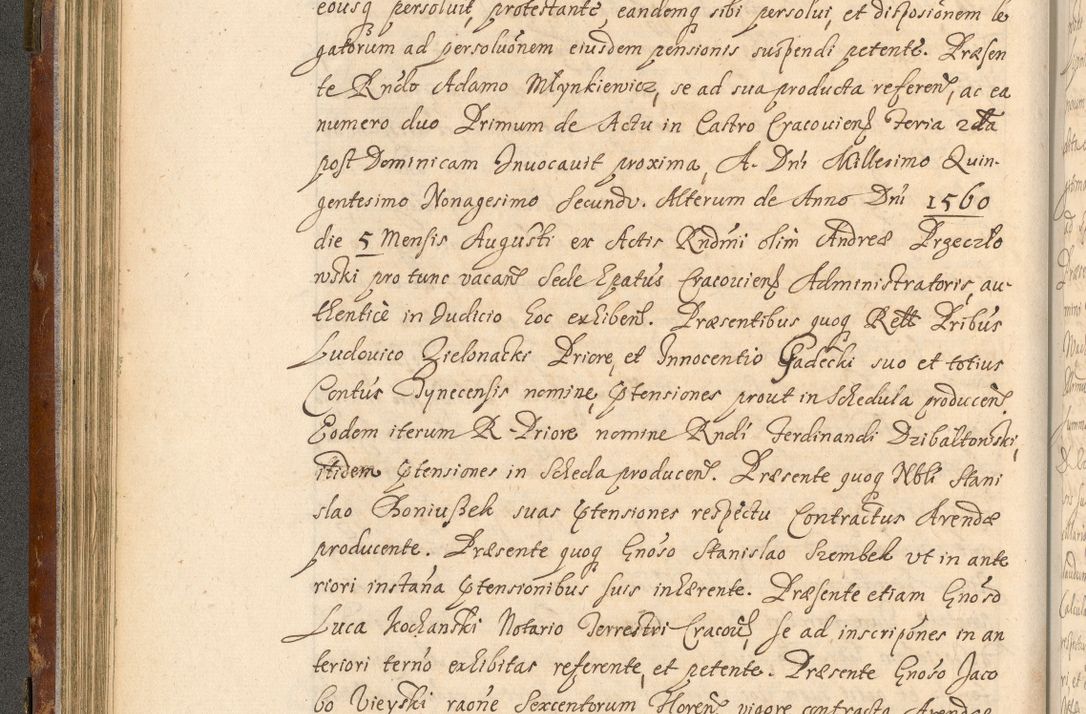 eousq persoluit, protestante, eandemq sibi persolui, et disposionem le
gatorum ad persoluõnem eiusdem pensionis suspendi petente. Præsen
te Rndo Adamo Młynkiewicz, se ad sua producta referen, ac ea
numero duo Primum de Actu in Castro Cracouien Feria 2da
post Dominicam Inuocauit proxima, A. Dni Millesimo Quin-
gentesimo Nonagesimo Secundo. Alterum de Anno Dni 1560
die 5 Mensis Augusti ex Actis Rndmi olim Andreæ Przeczło
wski pro tunc vacan Sede Epatus Cracouien Administratoris, au-
thentice in Iudicio hoc exhiben. Præsentibus quoq Rett Pribus
Ludouico Zielonacks Priore, et Innocentio Gadecki suo et totius
Contus Tynecensis nomine, ptensiones prout in Schedula producen.
Eodem iterum R. Priore nomine Rndi Ferdinandi Dzibałtowski,
itidem ptensiones in Scheda producen. Præsente quoq Nbli Stani
slao Boniuszek suas ptensiones respectu Contractus Arendæ
producente. Præsente quoq Gnoso Stanislao Szembek vt in ante
riori instana ptensionibus suis inhærente. Præsente etiam Gnoso
Luca Kochanski Notario Terrestri Cracou, se ad inscripones in an
teriori terno exhibitas referente, et petente. Præsente Gnoso Jaco
bo Vieyski raone Sexcentorum Floren vigore contracta Arendæ